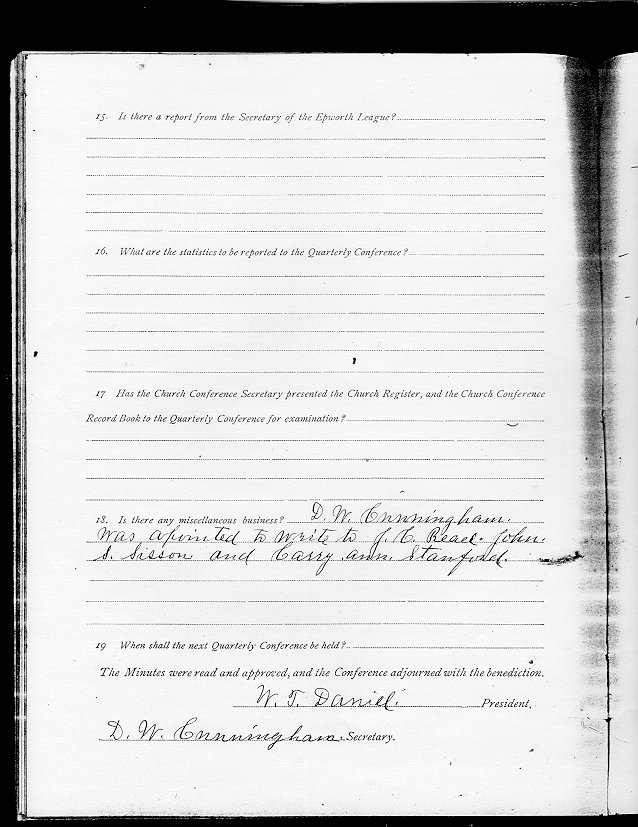 15. Is there a report from the Secretary of the Epworth League?
16. What are the statistics to be reported to the Quarterly Conference?
17 Has the Church Conference Secretary presented the Church Register, and the Church Conference
Record Book to the Quarterly Conference for examination?
18. Is there any miscellaneous business? D. W. Cunningham.
was apointed to write to J. C. John.
S. Sisson and Carry ann Stanford.
19 When shall the next Quarterly Conference be held?
The Minutes were read and approved, and the Conference adjourned with the benediction.
W. T. Daniel. President.
D. W. Cunningham. Secretary.